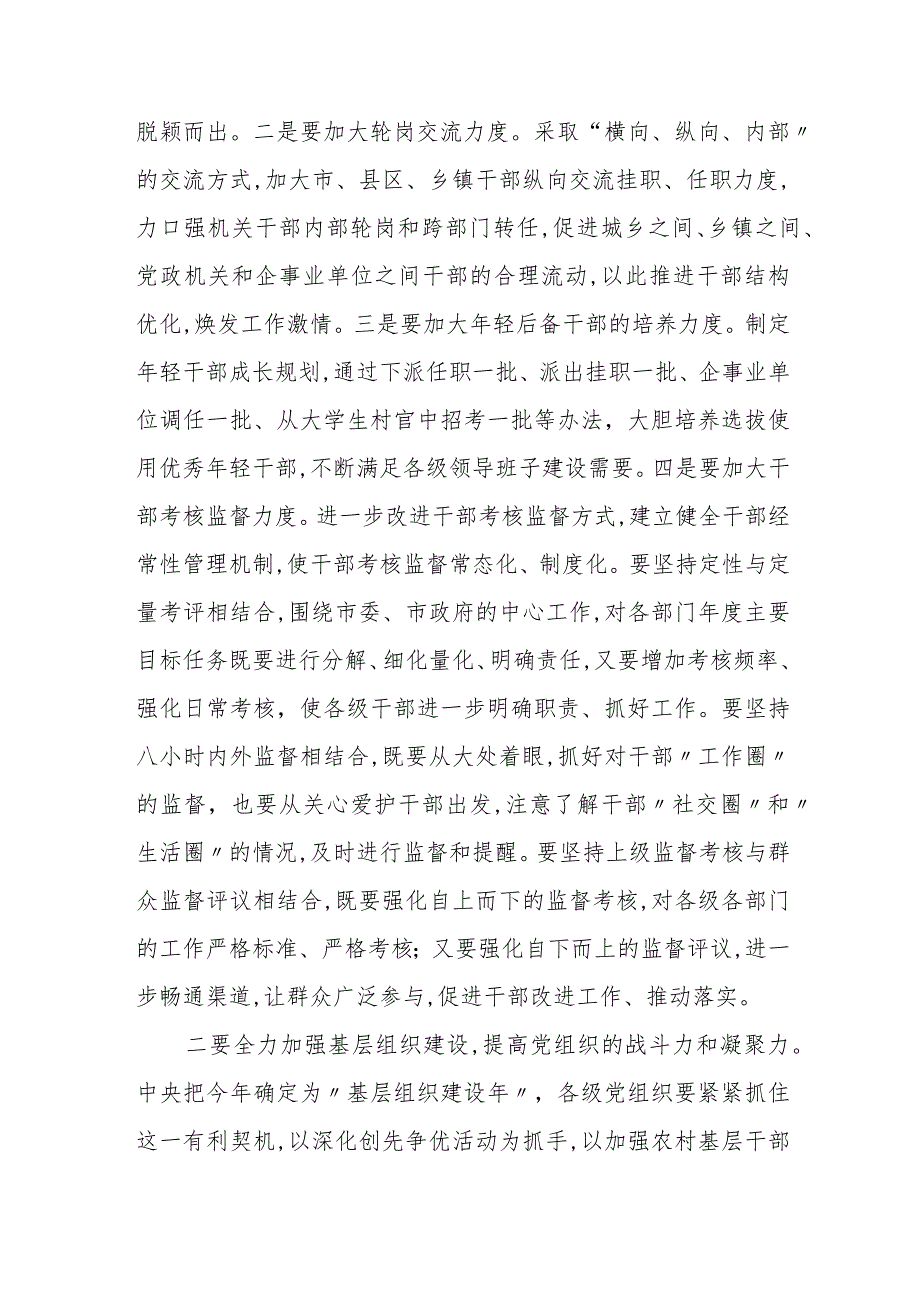 脱颖而出。二是要加大轮岗交流力度。采取“横向、纵向、内部〃
的交流方式,加大市、县区、乡镇干部纵向交流挂职、任职力度,
力口强机关干部内部轮岗和跨部门转任,促进城乡之间、乡镇之间、
党政机关和企事业单位之间干部的合理流动,以此推进干部结构
优化,焕发工作激情。三是要加大年轻后备干部的培养力度。制定
年轻干部成长规划,通过下派任职一批、派出挂职一批、企事业单
位调任一批、从大学生村官中招考一批等办法，大胆培养选拔使
用优秀年轻干部,不断满足各级领导班子建设需要。四是要加大干
部考核监督力度。进一步改进干部考核监督方式,建立健全干部经
常性管理机制,使干部考核监督常态化、制度化。要坚持定性与定
量考评相结合,围绕市委、市政府的中心工作,对各部门年度主要
目标任务既要进行分解、细化量化、明确责任,又要增加考核频率、
强化日常考核，使各级干部进一步明确职责、抓好工作。要坚持
八小时内外监督相结合,既要从大处着眼,抓好对干部〃工作圈〃
的监督，也要从关心爱护干部出发,注意了解干部〃社交圈〃和〃
生活圈〃的情况,及时进行监督和提醒。要坚持上级监督考核与群
众监督评议相结合,既要强化自上而下的监督考核,对各级各部门
的工作严格标准、严格考核；又要强化自下而上的监督评议,进一
步畅通渠道,让群众广泛参与,促进干部改进工作、推动落实。
二要全力加强基层组织建设,提高党组织的战斗力和凝聚力。
中央把今年确定为〃基层组织建设年〃，各级党组织要紧紧抓住
这一有利契机,以深化创先争优活动为抓手,以加强农村基层干部